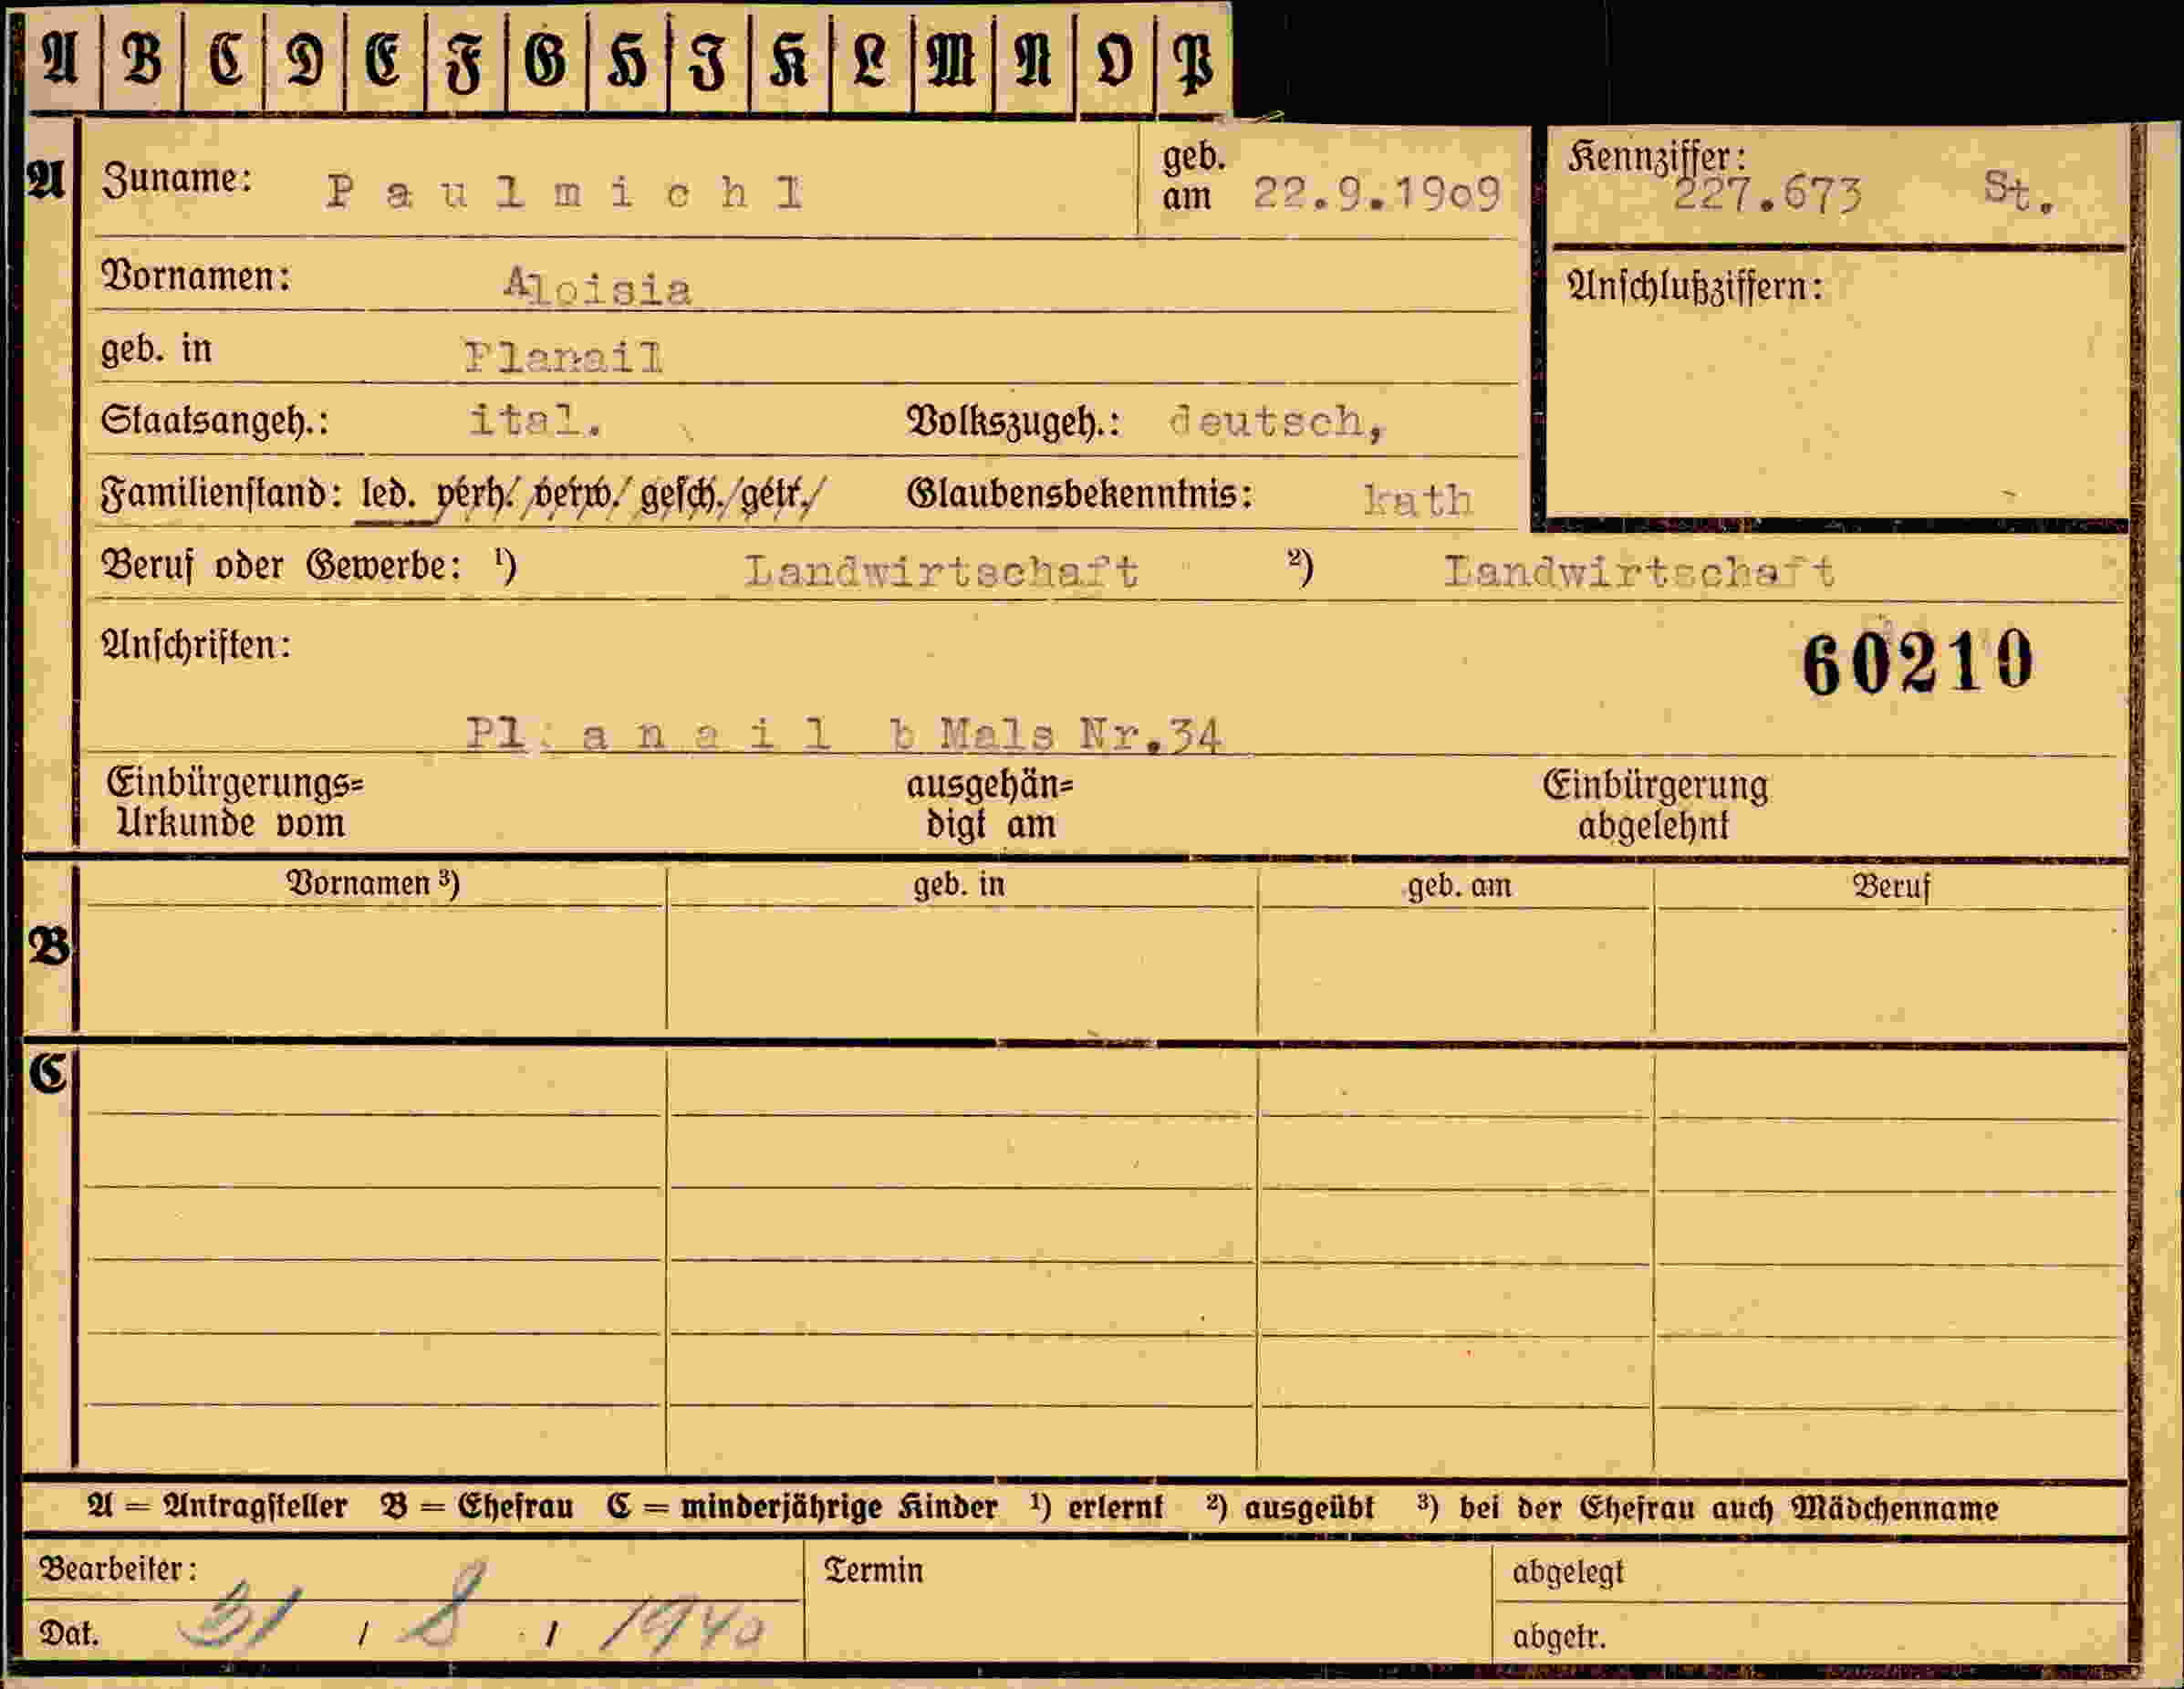 A B C D E F G H J K L M N O P
A Zuname: Paulmichl geb. am 22.9.1909 Kennziffer: 227.673 St.
Vornamen: Aloisia Anschlußziffern:
geb. in Planail
Staatsangeh.: ital. Volkszugeh.: deutsch,
Familienstand: led. verh. verw. gesch. getr. Glaubensbekenntnis: kath
Beruf oder Gewerbe: ¹) Landwirtschaft ²) Landwirtschaft
Anschriften: 60210
Pl. a n a i l b Mals Nr.34
Einbürgerungs= ausgehän= Einbürgerung
Urkunde vom digt am abgelehnt
Vornamen ³) geb. in geb. am Beruf
B
C
A = Antragsteller B = Ehefrau C = minderjährige Kinder ¹) erlernt ²) ausgeübt ³) bei der Ehefrau auch Mädchenname
Bearbeiter: Termin abgelegt
Dat. 31 / 8 / 1940 abgetr.